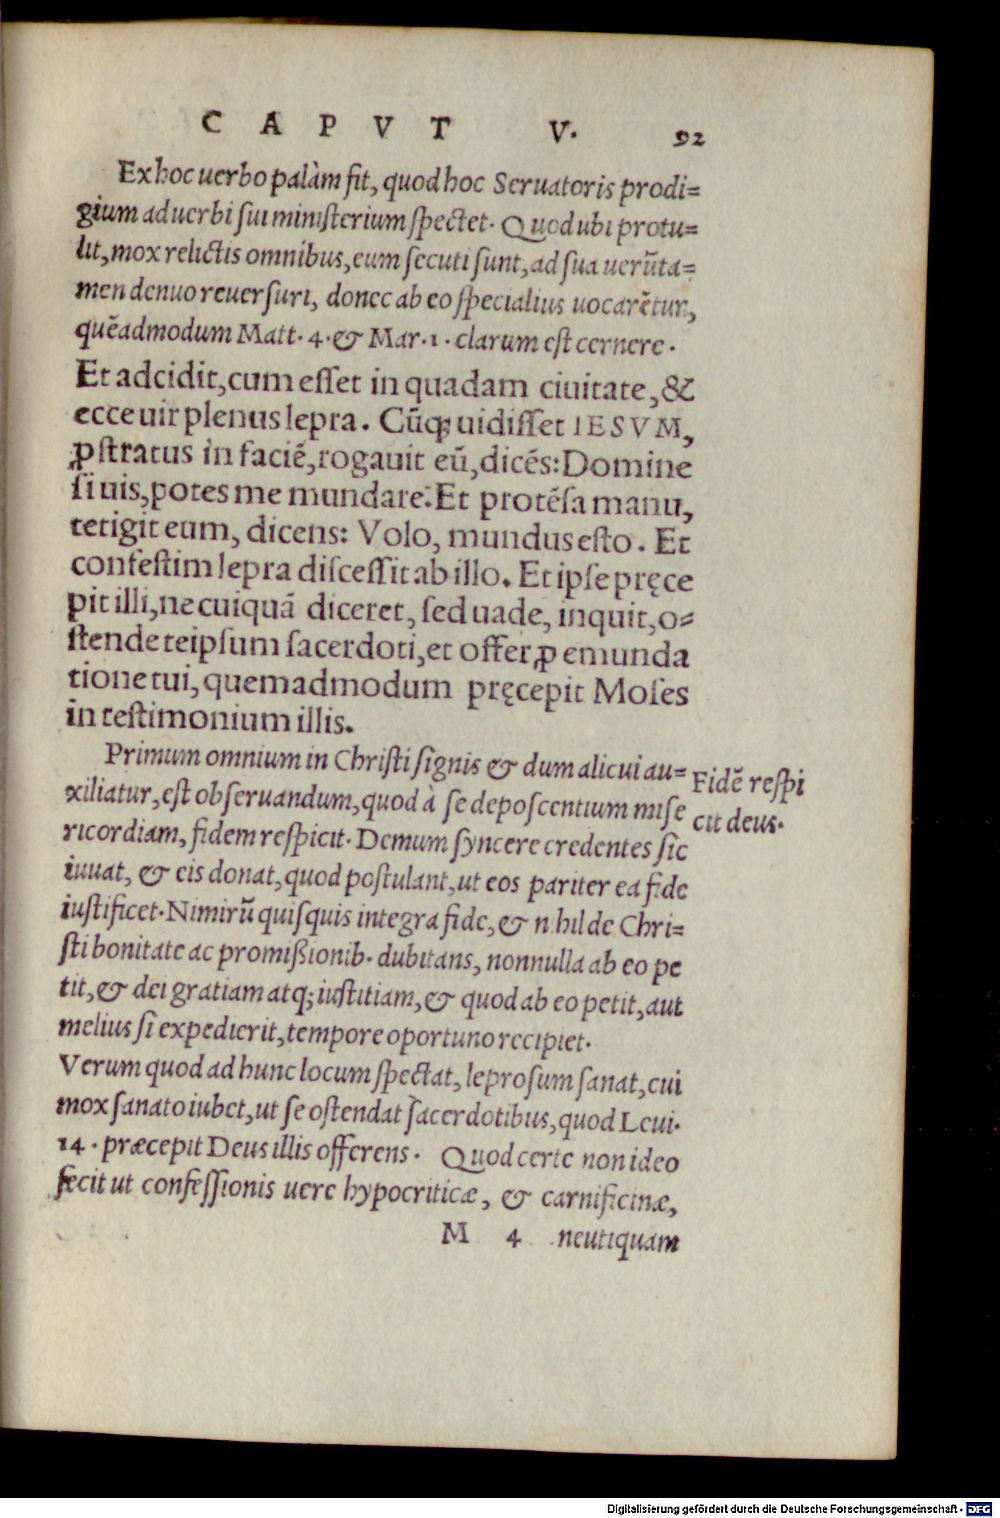 CAPVT V. 92
Ex hoc uerbo palàm fit, quod hoc Seruatoris prodi=
gium ad uerbi sui ministerium spectet. Quod ubi protu=
lit, mox relictis omnibus, eum secuti sunt, ad sua uerũta=
men denuo reuersuri, donec ab eo specialius uocarẽtur,
quẽadmodum Matt. 4. & Mar. 1. clarum est cernere.
Et adcidit, cum esset in quadam ciuitate, &
ecce uir plenus lepra. Cũq; uidisset IESVM,
ꝓstratus in faciẽ, rogauit eũ, dicẽs: Domine
si uis, potes me mundare. Et protẽsa manu,
tetigit eum, dicens: Volo, mundus esto. Et
confestim lepra discessit ab illo. Et ipse pręce
pit illi, ne cuiquã diceret, sed uade, inquit, o=
stende teipsum sacerdoti, et offer ꝓ emunda
tione tui, quemadmodum pręcepit Moses
in testimonium illis.
Primum omnium in Christi signis & dum alicui au=
xiliatur, est obseruandum, quod à se deposcentium mise
ricordiam, fidem respicit. Demum syncere credentes sic
iuuat, & eis donat, quod postulant, ut eos pariter ea fide
iustificet. Nimirũ quisquis integra fide, & nihil de Chri=
sti bonitate ac promißionib. dubitans, nonnulla ab eo pe
tit, & dei gratiam atq; iustitiam, & quod ab eo petit, aut
melius si expedierit, tempore oportuno recipiet.
Verum quod ad hunc locum spectat, leprosum sanat, cui
mox sanato iubet, ut se ostendat sacerdotibus, quod Leui.
14. præcepit Deus illis offerens. Quod certe non ideo
fecit ut confessionis uere hypocriticæ, & carnificinæ,
M 4 neutiquam
Fidẽ respi
cit deus.
Digitalisierung gefördert durch die Deutsche Forschungsgemeinschaft - DFG